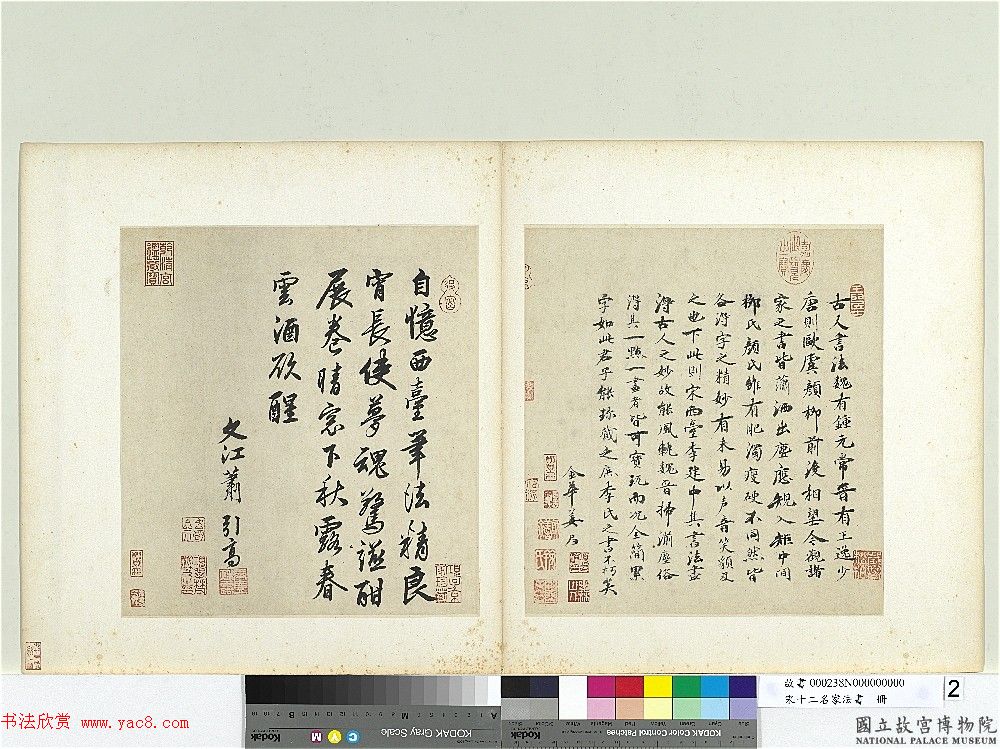 古人書法魏有鍾元常晉有王逸少
唐則歐虞顏柳前後相望今觀諸
家之書皆蕭洒出塵應規入矩中間
柳氏顏氏雖有肥濁瘦硬不同然皆
各得字之精妙有未易以聲音笑貌及
之也下此則宋西臺李建中其書法盡
得古人之妙故能風軌魏晉掃滌塵俗
得其一點一畫者皆可寶玩而況全簡累
字如此君子能珍藏之庶李氏之書不朽矣
金華姜
自憶西臺筆法精良
宵長使夢魂驚謐酣
展卷晴窓下秋露春
雲酒欲醒
文江蕭引高
乾清宮鑑藏寶
書法欣赏 www.yac8.com
KODAK Gray Scale
C Y M
Kodak
KODAK Color Control Patches
故書000238N000000000
宋十二名家法書 冊
2
國立故宮博物院
NATIONAL PALACE MUSEUM